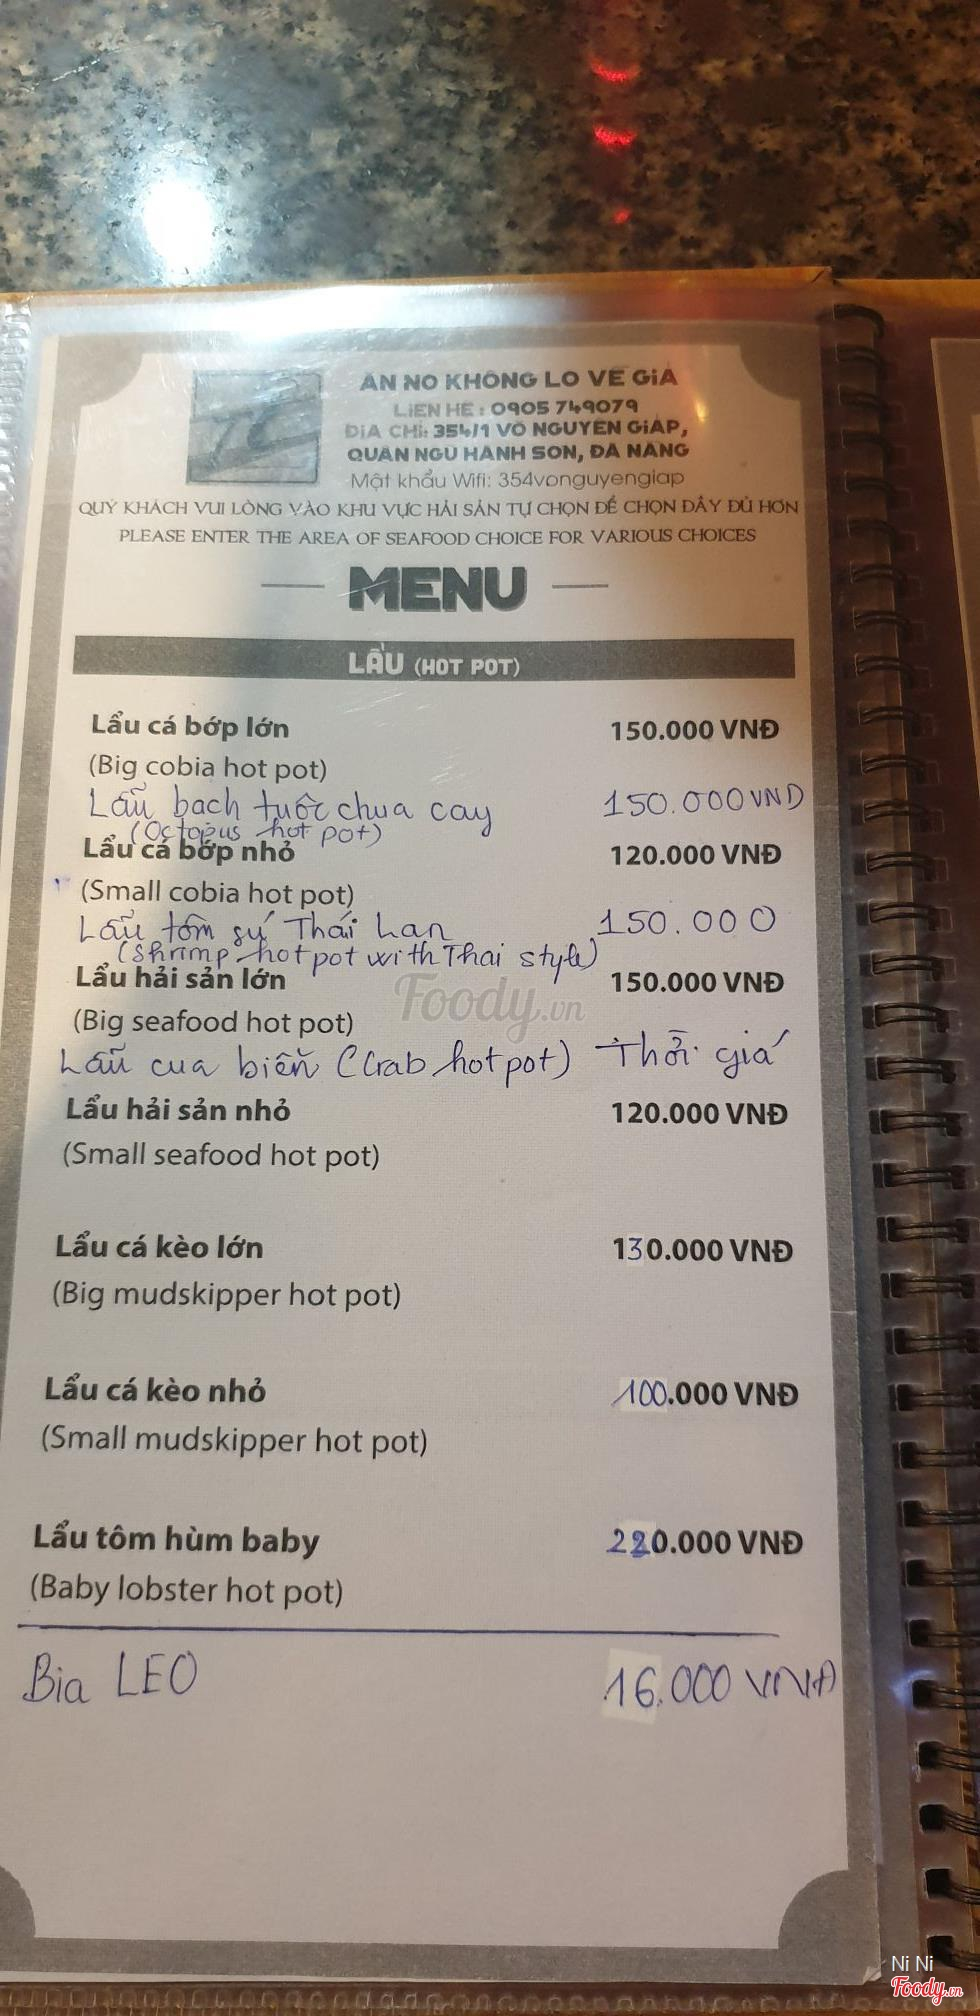 ĂN NO KHÔNG LO VỀ GIÁ
LIÊN HỆ : 0905 749079
ĐỊA CHỈ: 354/1 VÕ NGUYÊN GIÁP,
QUẬN NGŨ HÀNH SƠN, ĐÀ NẴNG
Mật khẩu Wifi: 354vonguyengiap
QUÝ KHÁCH VUI LÒNG VÀO KHU VỰC HẢI SẢN TỰ CHỌN ĐỂ CHỌN ĐẦY ĐỦ HƠN
PLEASE ENTER THE AREA OF SEAFOOD CHOICE FOR VARIOUS CHOICES
MENU
LẨU (HOT POT)
Lẩu cá bớp lớn 150.000 VNĐ
(Big cobia hot pot)
Lẫu bach tuôc chua cay 150.000 VND
(Octopus hot pot)
Lẩu cá bớp nhỏ 120.000 VNĐ
(Small cobia hot pot)
Lẫu tôm sú Thái Lan 150.000
(Shrimp hot pot with Thai style)
Lẩu hải sản lớn 150.000 VNĐ
(Big seafood hot pot)
Lẫu cua biển (Crab hot pot) Thời giá
Lẩu hải sản nhỏ 120.000 VNĐ
(Small seafood hot pot)
Lẩu cá kèo lớn 130.000 VNĐ
(Big mudskipper hot pot)
Lẩu cá kèo nhỏ 100.000 VNĐ
(Small mudskipper hot pot)
Lẩu tôm hùm baby 220.000 VNĐ
(Baby lobster hot pot)
Bia LEO 16.000 VNĐ
Foody.vn
Ni Ni
Foody.vn